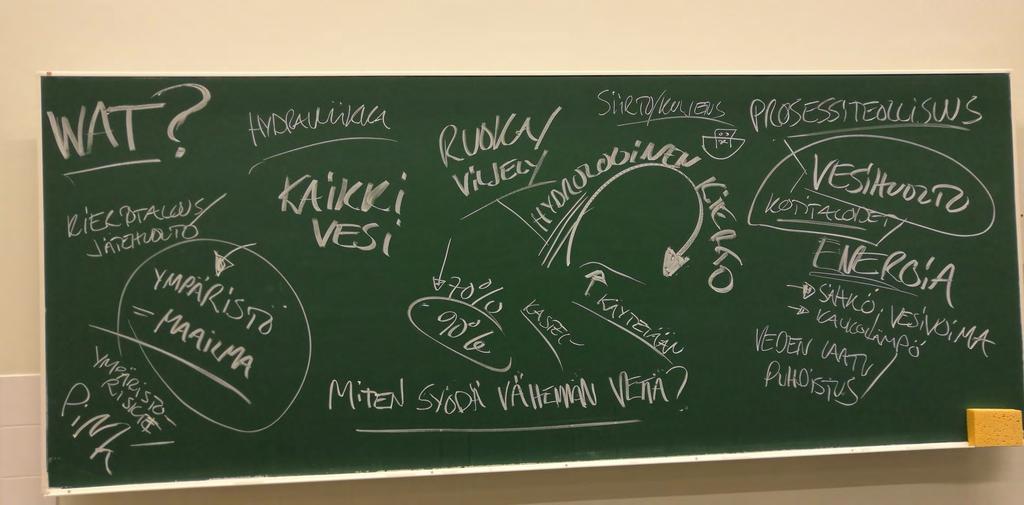 WAT?
HYDRAULIIKKA
KAIKKI
VESI
RUOKA/
VILJELY
HYDROLOGINEN KIERTO
SIIRTO/KULJETUS
PROSESSITEOLLISUUS
VESIHUOLTO
KOTITALOUDET
ENERGIA
→ SÄHKÖ, VESIVOIMA
→ KAUKOLÄMPÖ
VEDEN LAATU
PUHDISTUS
KIERTOTALOUS/
JÄTEHUOLTO
YMPÄRISTÖ
= MAAILMA
YMPÄRISTÖ-
RISKIT
70%
90%
KASTELU
KÄYTETÄÄN
MITEN SYÖDÄ VÄHEMMÄN VETTÄ?